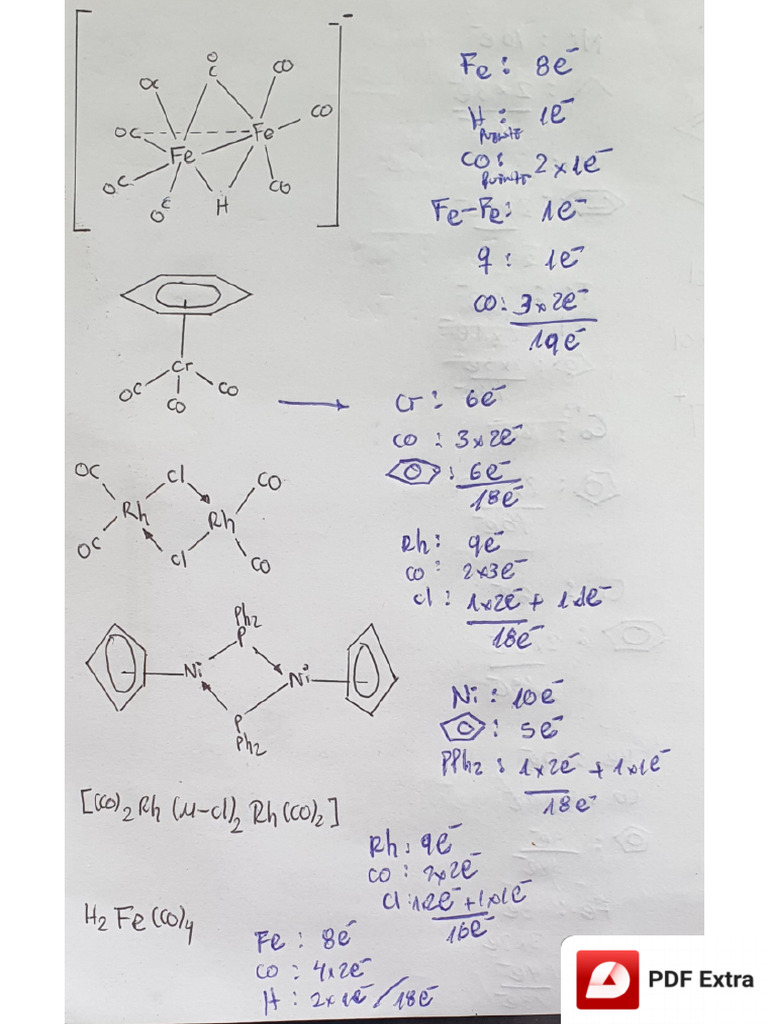 OC
O
C
CO
CO
OC
Fe
Fe
OC
OC
H
CO
--
Fe: 8e⁻
H: 1e⁻
puente
CO: 2x1e⁻
puente
Fe-Fe: 1e⁻
q: 1e⁻
CO: 3x2e⁻
19e⁻
Cr
OC
CO
CO
Cr: 6e⁻
CO: 3x2e⁻
: 6e⁻
18e⁻
OC
Cl
CO
Rh
Rh
OC
Cl
CO
Rh: 9e⁻
CO: 2x3e⁻
Cl: 1x2e⁻ + 1x1e⁻
18e⁻
Ph2
P
Ni
Ni
P
Ph2
Ni: 10e⁻
: 5e⁻
PPh2: 1x2e⁻ + 1x1e⁻
18e⁻
[(CO)2Rh(μ-Cl)2Rh(CO)2]
Rh: 9e⁻
CO: 2x2e⁻
Cl: 1x2e⁻ + 1x1e⁻
16e⁻
H2Fe(CO)4
Fe: 8e⁻
CO: 4x2e⁻
H: 2x1e⁻ / 18e⁻
PDF Extra